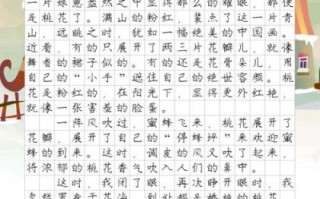 一片绿意盎然之中显得那么的耀眼，那便
是桃花了。满山的粉红，装点了这一片青
山，远眺之时，犹如一幅绝美的中国画。
近看，有的只展开了两三片花瓣儿，就像
舞者的裙子似的。有的还是花骨朵儿，用
自己的“小手”遮住自己的绝世容颜。桃
花是粉红的，在阳光下，显得更外红艳，
就像一张害羞的脸蛋。
一阵风吹过，蜜蜂飞来，桃花展开了
花瓣，展开了自己的“停蜂坪”来欢迎蜜
蜂的到来。这时，调皮的风又吹了起来，
将浓郁的桃花香气吹入人们的鼻中。
这时，我闭了眼，再次睁开眼时，我